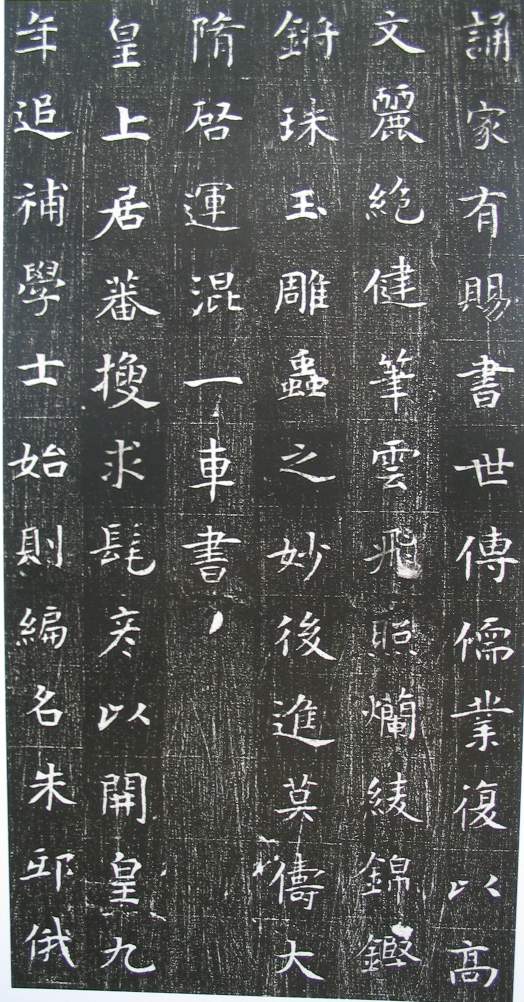 誦家有賜書世傳儒業復以高
文麗絕健筆雲飛照爛綾錦鏗
鏘珠玉雕蟲之妙後進莫儔大
隋啓運混一車書
皇上居蕃搜求髦彦以開皇九
年追補學士始則編名朱邸俄